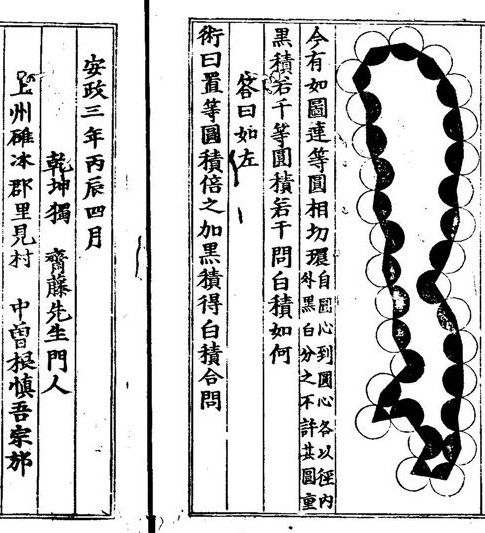 今有如圖連等圓相切環自圓心到圓心各以徑內
外黑白分之不許其圓重
黑積若干等圓積若干問白積如何
答曰如左
術曰置等圓積倍之加黑積得白積合問
安政三年丙辰四月
乾坤獨 齊藤先生門人
上州碓氷郡里見村 中曽根慎吾宗邡